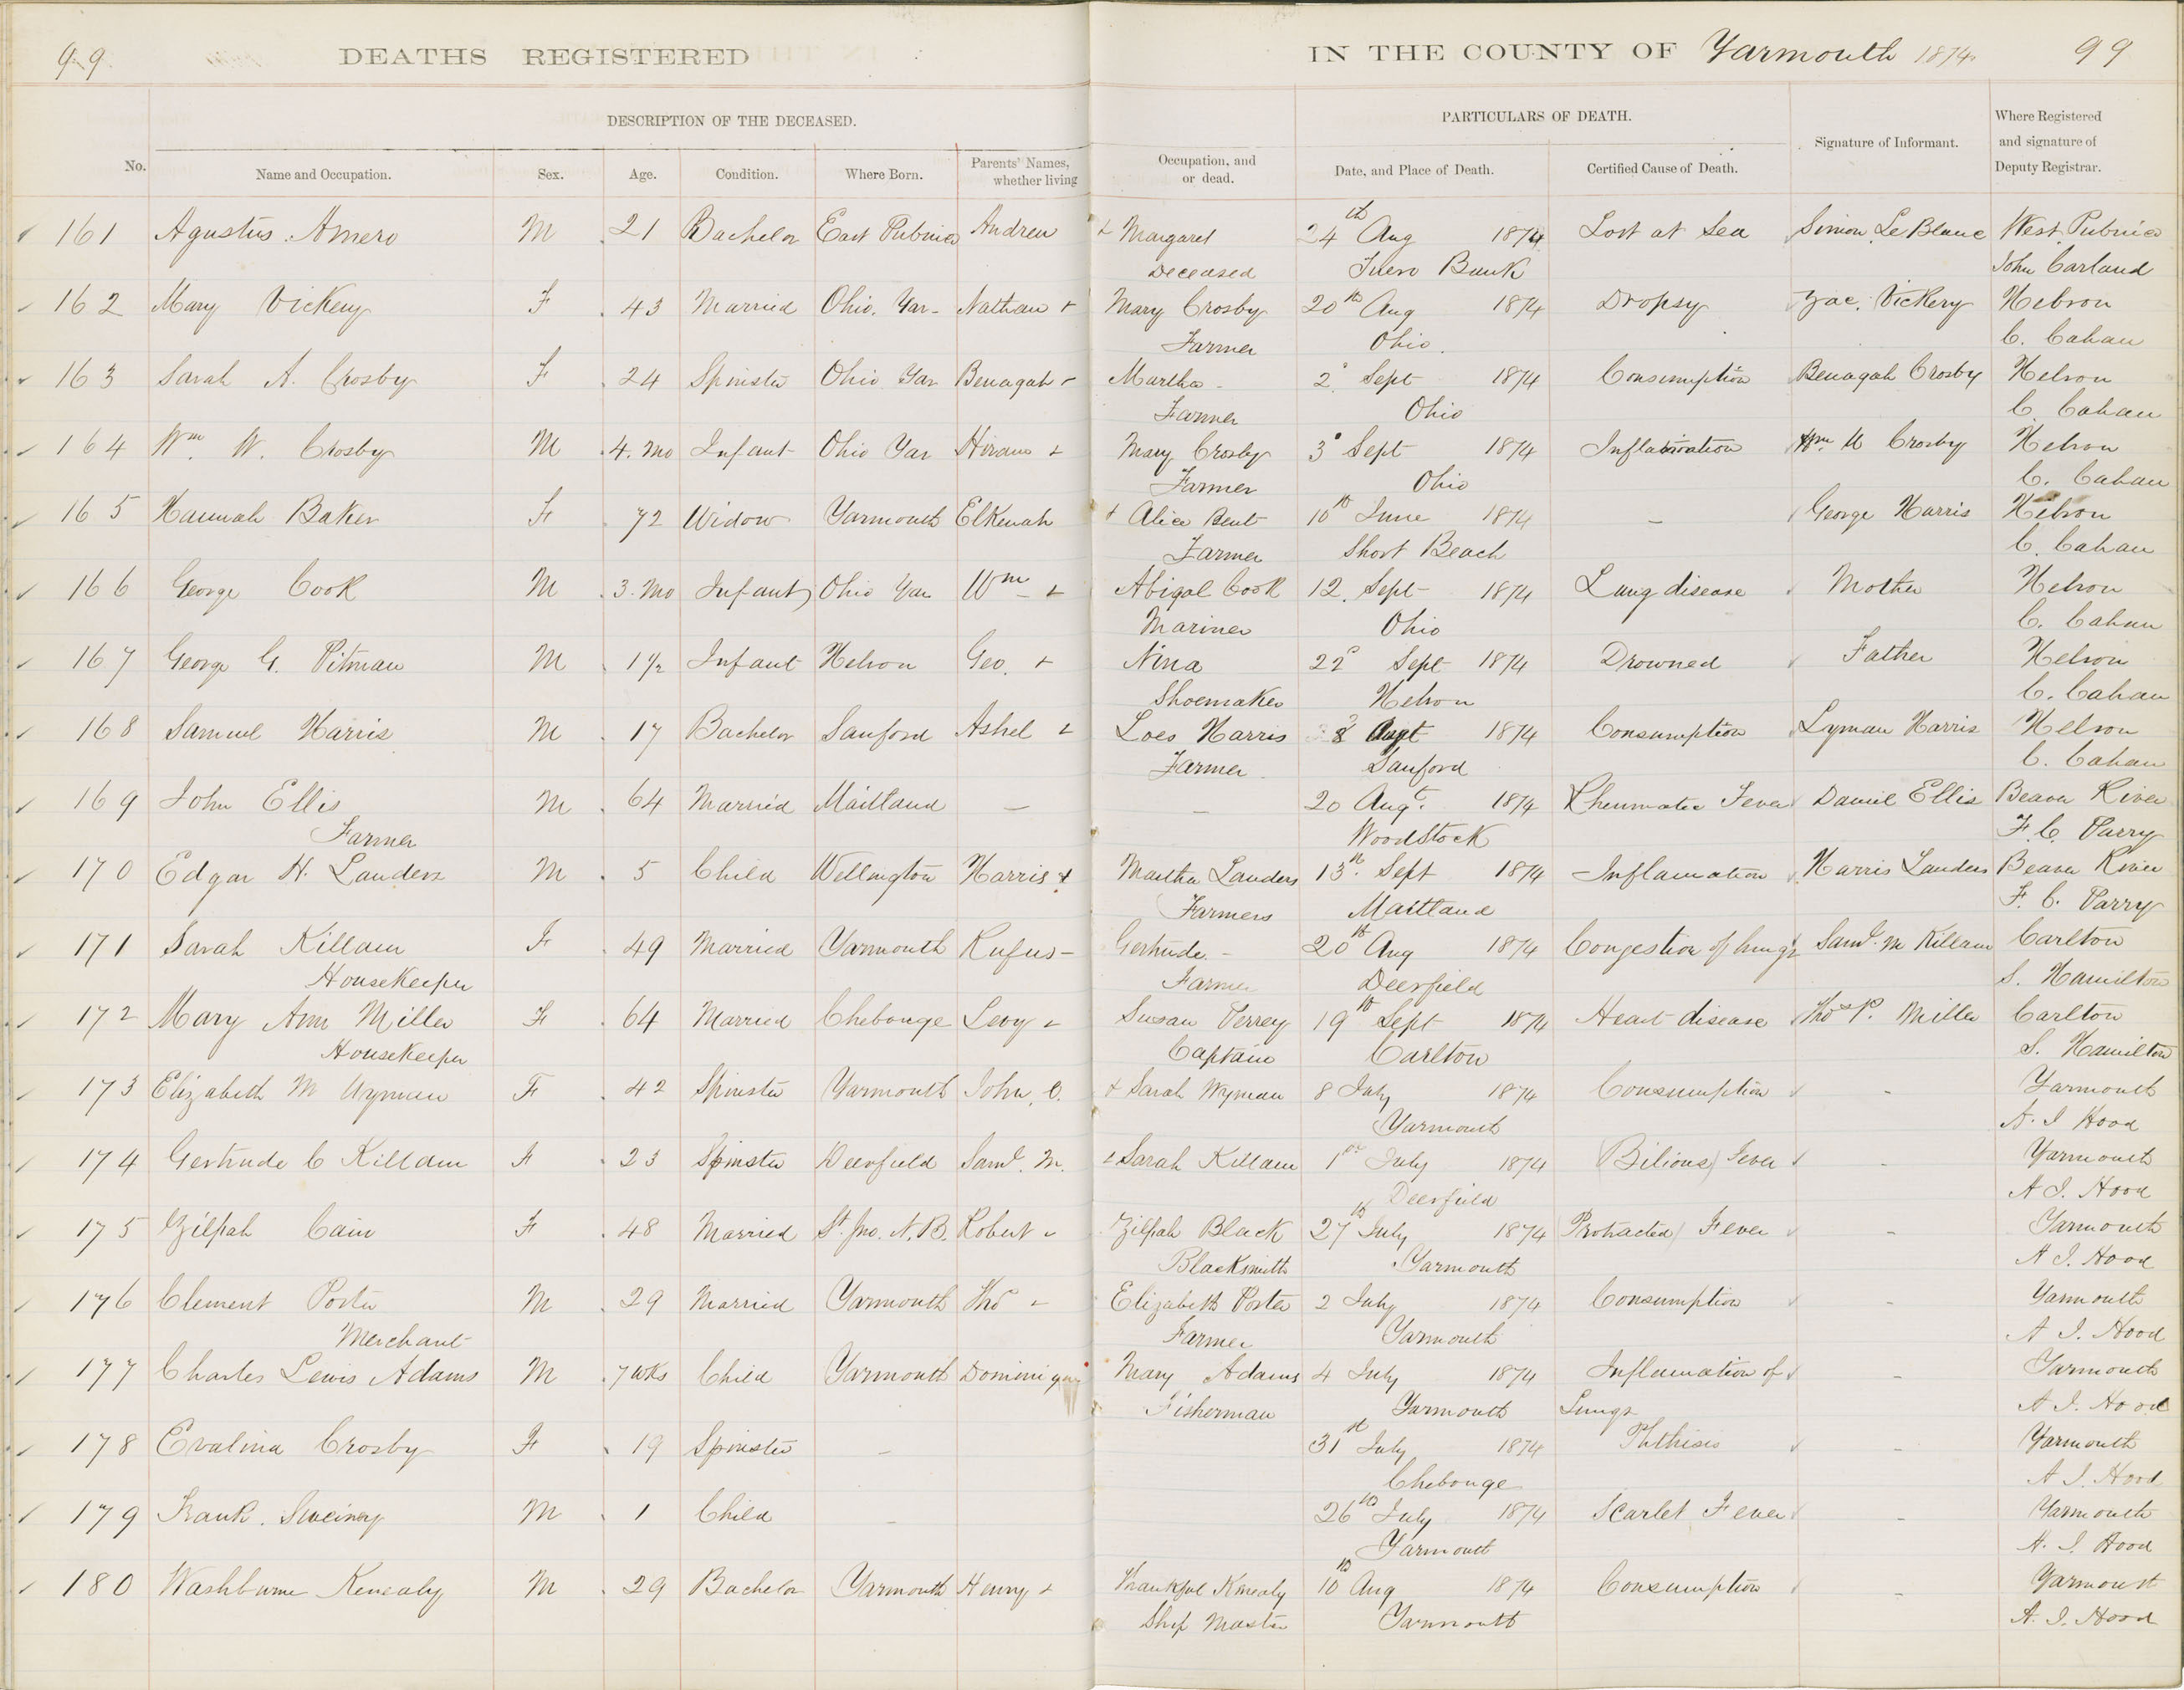 99 DEATHS REGISTERED IN THE COUNTY OF Yarmouth 1874 99
DESCRIPTION OF THE DECEASED. PARTICULARS OF DEATH. Signature of Informant. Where Registered and signature of Deputy Registrar.
No. Name and Occupation. Sex. Age. Condition. Where Born. Parents' Names, whether living Occupation, and or dead. Date, and Place of Death. Certified Cause of Death.
161 Agustus Amero M 21 Bachelor East Pubnico Andrew + Margaret 24th Aug 1874 Lost at Sea Simon LeBlanc West Pubnico
Deceased Bank John Carland
162 Mary Vickery F 43 Married Ohio. Yar- Nathan + Mary Crosby 20th Aug 1874 Dropsy Zac. Vickery Hebron
Farmer Ohio C. Cahan
163 Sarah A. Crosby F 24 Spinster Ohio Yar Benagah + Martha - 2d Sept 1874 Consumption Benagah Crosby Hebron
Farmer Ohio C. Cahan
164 Wm. W. Crosby M 4. Mo Infant Ohio Yar Hiram + Mary Crosby 3d Sept 1874 Inflamation Wm Crosby Hebron
Farmer Ohio C. Cahan
165 Hannah Baker F 72 Widow Yarmouth Elkenah + Alice Bent 10th June 1874 - George Harris Hebron
Farmer Short Beach C. Cahan
166 George Cook M 3. Mo Infant Ohio Yar Wm - + Abigal Cook 12 Sept 1874 Lung disease Mother Hebron
Mariner Ohio C. Cahan
167 George G. Pitman M 1½ Infant Hebron Geo. + Nina 22d Sept 1874 Drowned Father Hebron
Shoemaker Hebron C. Cahan
168 Samuel Harris M 17 Bachelor Sanford Ashel + Loes Harris 8 1874 Consumption Lyman Harris Hebron
Farmer Sanford C. Cahan
169 John Ellis M 64 Married Maitland - - 20 Augt. 1874 Rheumatic Fever Daniel Ellis Beaver River
Farmer Woodstock F. C. Parry
170 Edgar H. Landers M 5 Child Wellington Harris + Martha Landers 13th Sept 1874 Inflamation Harris Landers Beaver River
Farmers Maitland F. C. Parry
171 Sarah Killam F 49 Married Yarmouth Rufus - Gertrude - 20th Aug 1874 Congestion of lungs Saml. M Killam Carlton
Housekeeper Farmer Deerfield S. Hamilton
172 Mary Ann Miller F 64 Married Chebouge Levy + Susan Perrey 19th Sept 1874 Heart disease Thos P. Miller Carlton
Housekeeper Captain Carlton S. Hamilton
173 Elizabeth M Wyman F 42 Spinster Yarmouth John, C. + Sarah Wyman 8 July 1874 Consumption - Yarmouth
Yarmouth A. J Hood
174 Gertrude C Killam F 23 Spinster Deerfield Saml. M. + Sarah Killam 1st July 1874 (Bilious) Fever - Yarmouth
Deerfield A J. Hood
175 Zilpah Cain F 48 Married St. Jno. N. B. Robert + Zilpah Black 27th July 1874 Protracted Fever - Yarmouth
Blacksmith Yarmouth A J. Hood
176 Clement Porter M 29 Married Yarmouth Thos + Elizabeth Porter 2 July 1874 Consumption - Yarmouth
Merchant Farmer Yarmouth A J. Hood
177 Charles Lewis Adams M 7 wks Child Yarmouth Mary Adams 4 July 1874 Inflamation of - Yarmouth
Fisherman Yarmouth Lungs A J. Hood
178 Evalina Crosby F 19 Spinster - 31st July 1874 Phthisis - Yarmouth
Chebouge A J. Hood
179 Frank. Sweiney M 1 Child - 26th July 1874 Scarlet Fever - Yarmouth
Yarmouth A. J. Hood
180 Washburne Kenealy M 29 Bachelor Yarmouth Henry + Thankful Kenealy 10th Aug 1874 Consumption - Yarmouth
Ship Master Yarmouth A. J. Hood